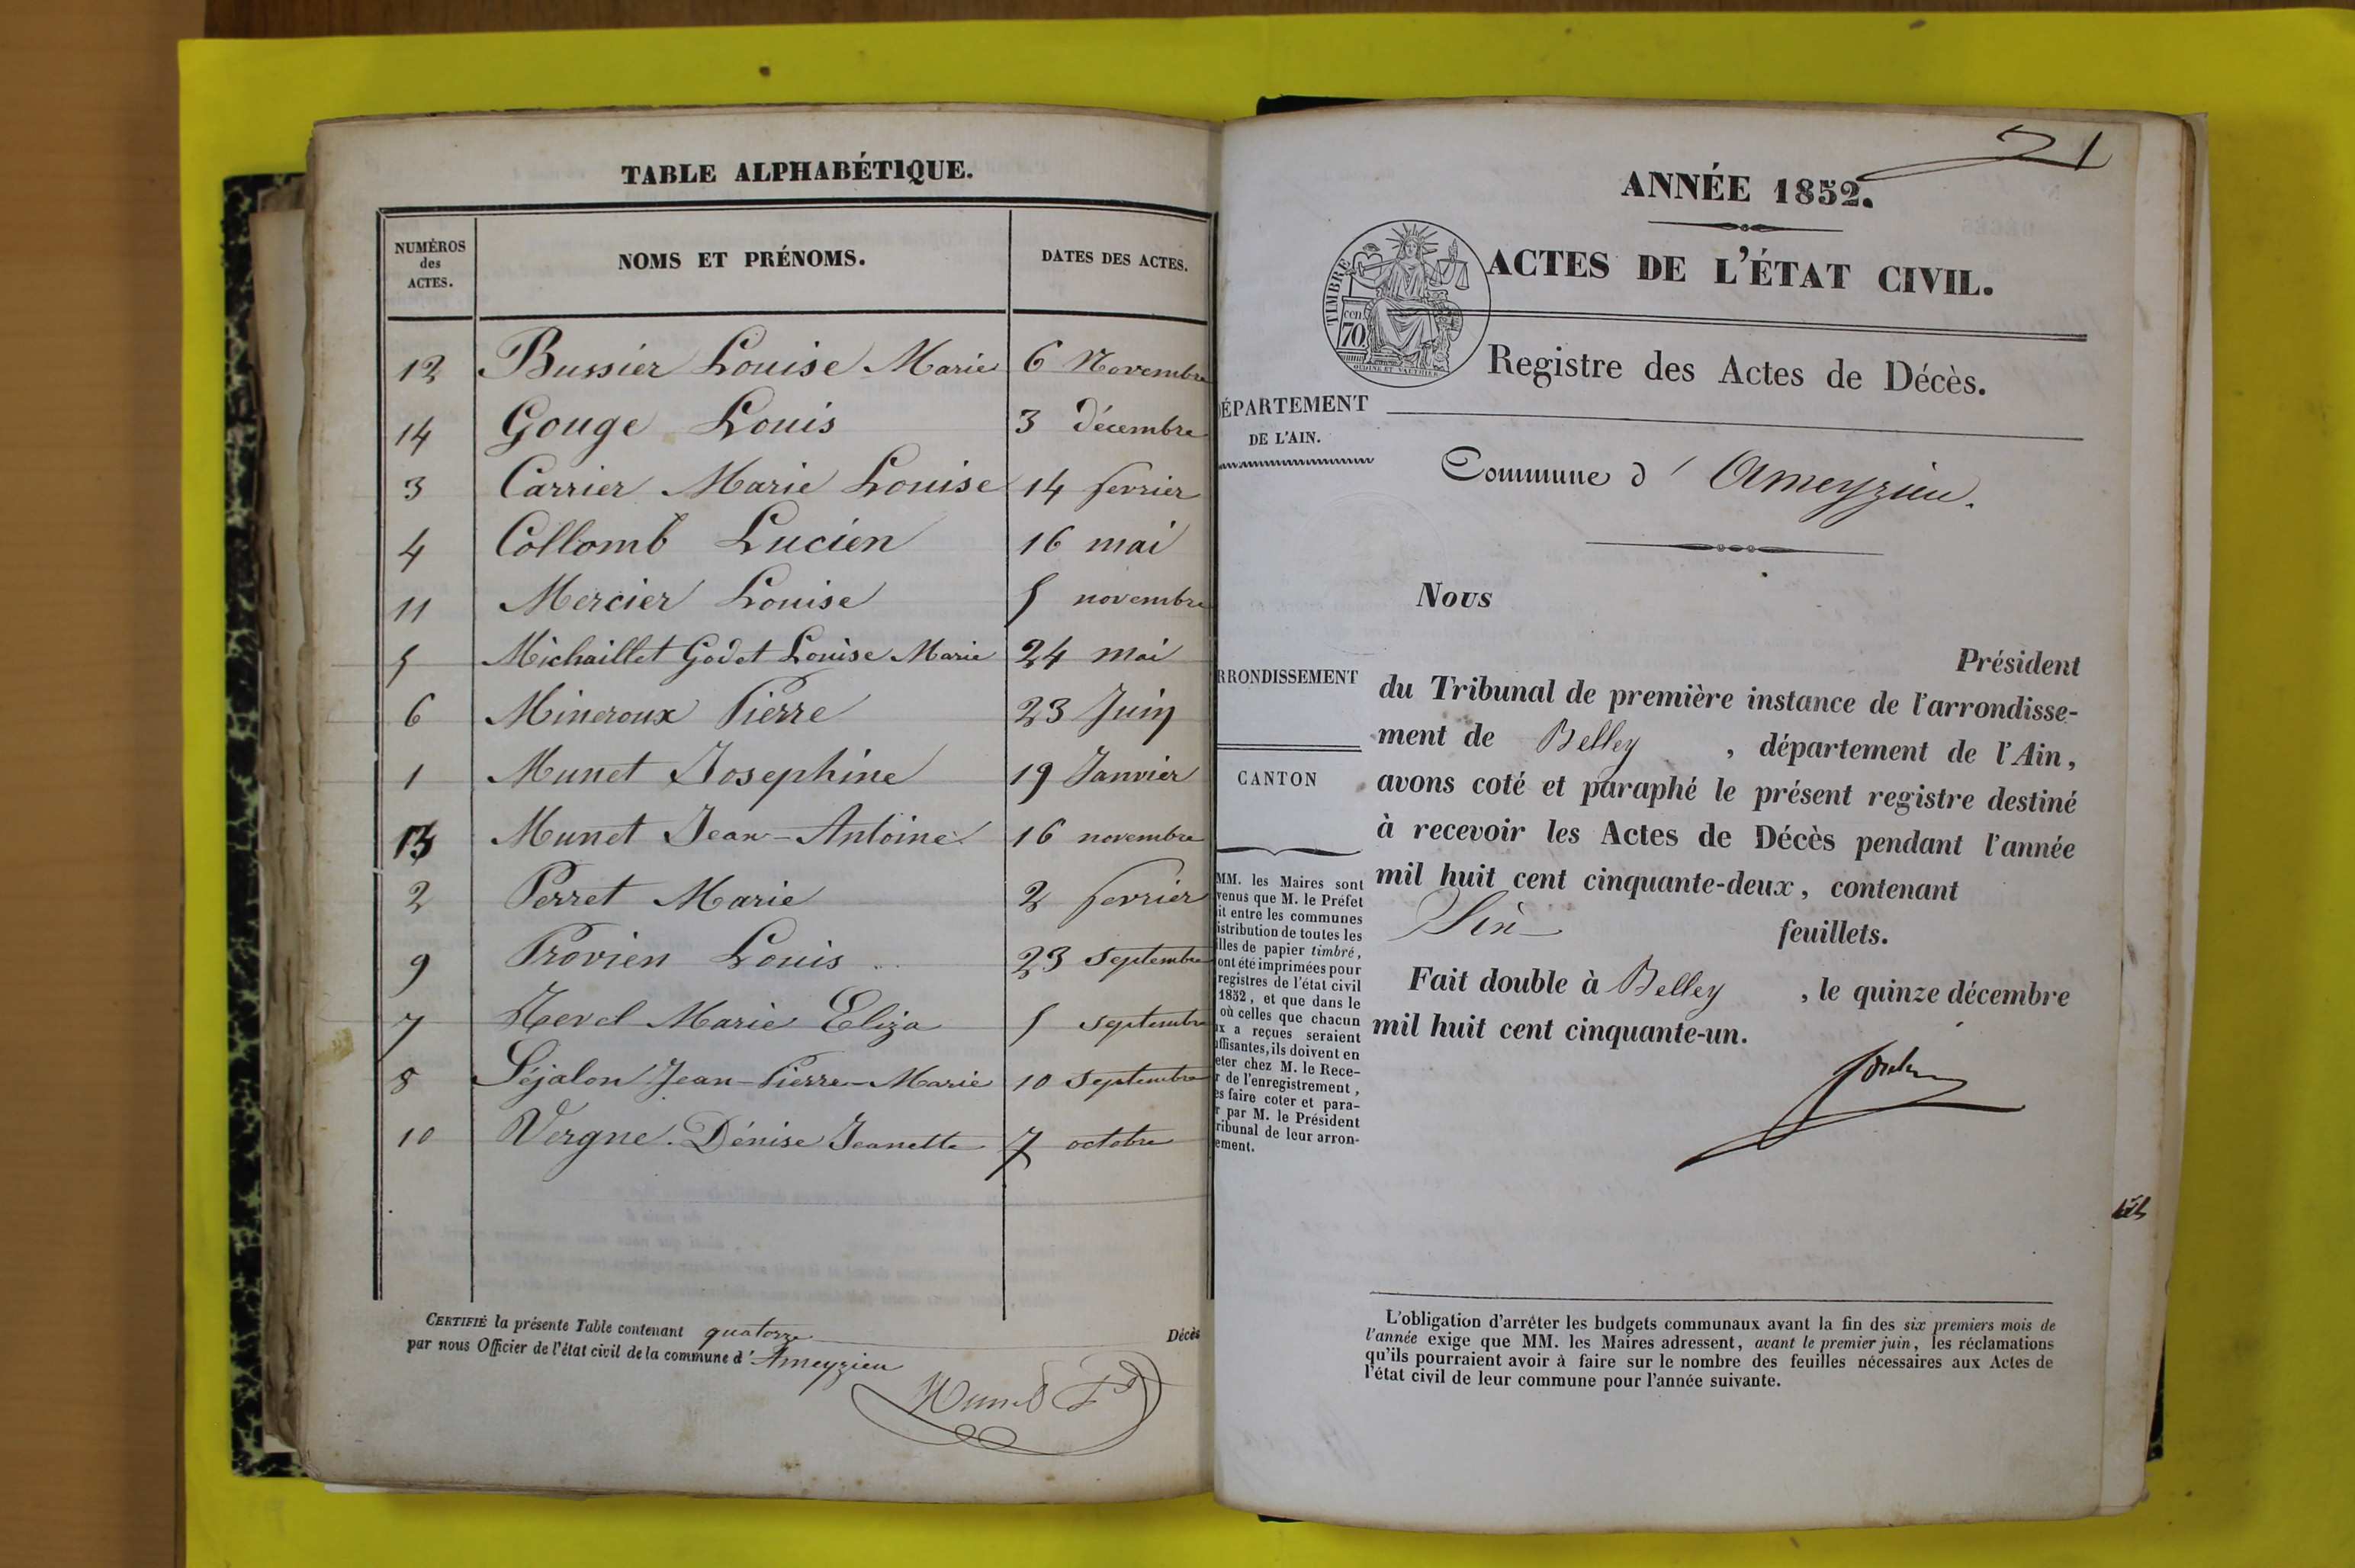 TABLE ALPHABÉTIQUE.
NUMÉROS des ACTES. NOMS ET PRÉNOMS. DATES DES ACTES.
12 Bussier Louise Marie 6 Novembre
14 Gouge Louis 3 décembre
3 Carrier Marie Louise 14 fevrier
4 Collomb Lucien 16 mai
11 Mercier Louise 5 novembre
5 Michaillet Godet Louise Marie 24 mai
6 Mineroux Pierre 23 Juin
1 Munet Josephine 19 Janvier
13 Munet Jean-Antoine 16 novembre
2 Perret Marie 2 fevrier
9 Provien Louis 23 septembre
7 Revel Marie Eliza 5 septembre
8 Séjalon Jean-Pierre-Marie 10 septembre
10 Vergne Dénise Jeanette 7 octobre
CERTIFIÉ la présente Table contenant quatorze Décès
par nous Officier de l'état civil de la commune d'Ameyzieu
21
ANNÉE 1852.
ACTES DE L'ÉTAT CIVIL.
TIMBRE
cen
70
Registre des Actes de Décès.
ÉPARTEMENT
DE L'AIN.
Commune d'Ameyzieu.
Nous
Président
RRONDISSEMENT
du Tribunal de première instance de l'arrondisse-
ment de Belley, département de l'Ain,
CANTON
avons coté et paraphé le présent registre destiné
à recevoir les Actes de Décès pendant l'année
mil huit cent cinquante-deux, contenant
Six feuillets.
Fait double à Belley, le quinze décembre
mil huit cent cinquante-un.
MM. les Maires sont
venus que M. le Préfet
it entre les communes
istribution de toutes les
lles de papier timbré,
ont été imprimées pour
registres de l'état civil
1852, et que dans le
où celles que chacun
ux a reçues seraient
ffisantes, ils doivent en
eter chez M. le Rece-
r de l'enregistrement,
es faire coter et para-
r par M. le Président
ribunal de leur arron-
ement.
L'obligation d'arrêter les budgets communaux avant la fin des six premiers mois de
l'année exige que MM. les Maires adressent, avant le premier juin, les réclamations
qu'ils pourraient avoir à faire sur le nombre des feuilles nécessaires aux Actes de
l'état civil de leur commune pour l'année suivante.